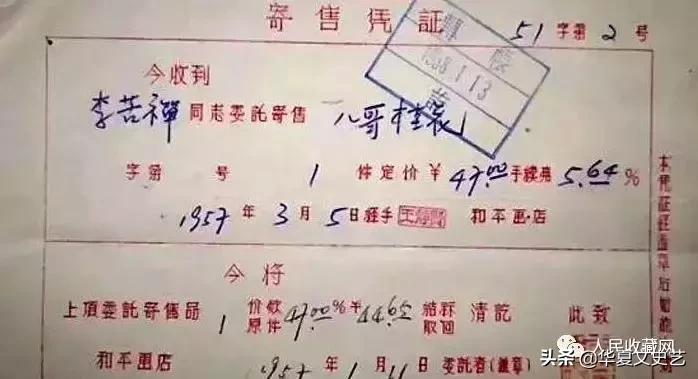 寄售凭証
51字第2号
1958.1.13
今收到
李苦禪同志委託寄售 八哥
字第 号 1 件定价¥47.00手續费5.64%
1957年3月5日經手 和平画店
今将
上項委託寄售品 1 价款 原件 47.00 结算 取回 清訖 此致
和平画店 1957年1月11日委託者(蓋章)
人民收藏网
头条@华夏文史艺